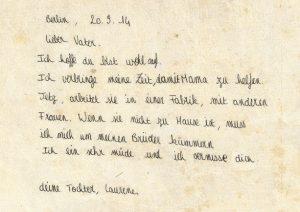 Berlin, 20.3.14
lieber Vater.
Ich hoffe du bist wohl auf.
Ich verbringe meine Zeit, damit Mama zu helfen.
Jetz, arbeitet sie in einer Fabrik, mit anderen
Frauen. Wenn sie nicht zu Hause ist, muss
ich mich um meinen Brüder kümmern
Ich bin sehr müde und ich vermisse dich
deine Tochter, Laurene.